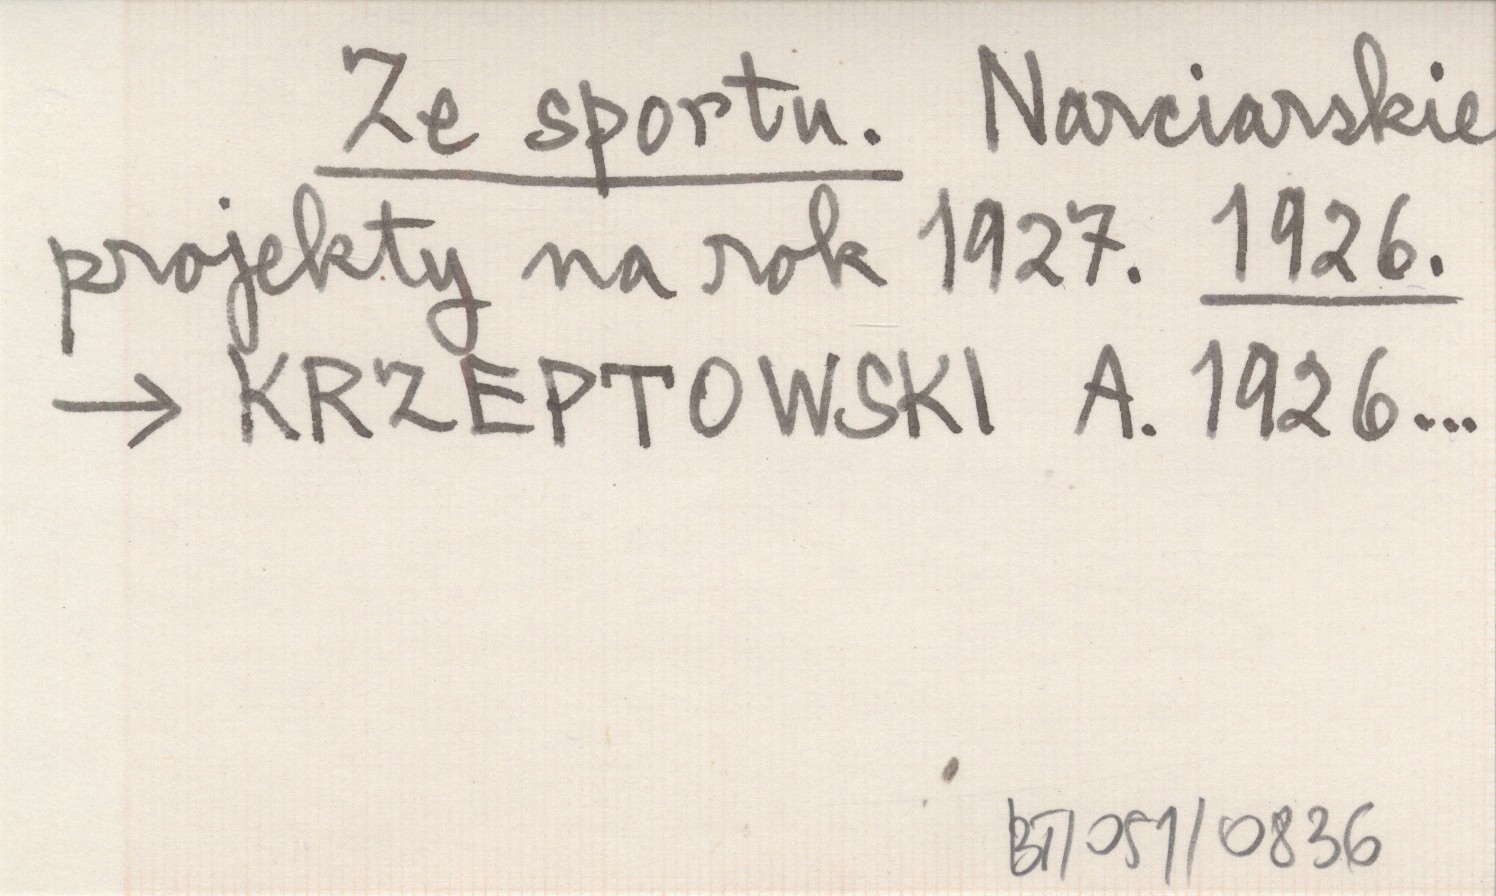 Ze sportu. Narciarskie
projekty na rok 1927. 1926.
→ KRZEPTOWSKI A. 1926...
BT/051/0836